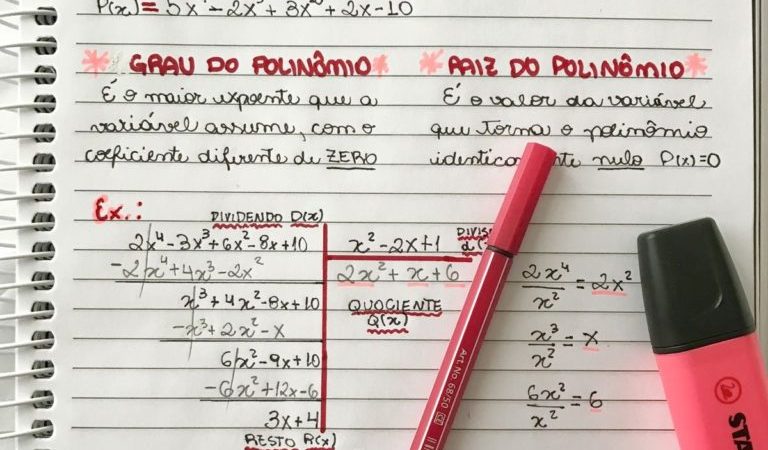 P(x) = 5x - 2x + 3x + 2x - 10
* GRAU DO POLINÔMIO *
É o maior expoente que a
variável assume, com o
coeficiente diferente de ZERO
* RAIZ DO POLINÔMIO *
É o valor da variável
que torna o polinômio
nulo P(x)=0
Ex.:
DIVIDENDO D(x)
2x⁴-3x³+6x²-8x+10
-2x⁴+4x³-2x²
x³+4x²-8x+10
-x³+2x²-x
6x²-9x+10
-6x²+12x-6
3x+4
RESTO R(x)
x²-2x+1
2x²+x+6
QUOCIENTE
Q(x)
2x⁴/x² = 2x²
x³/x² = x
6x²/x² = 6
Art. No. 68/50
STA